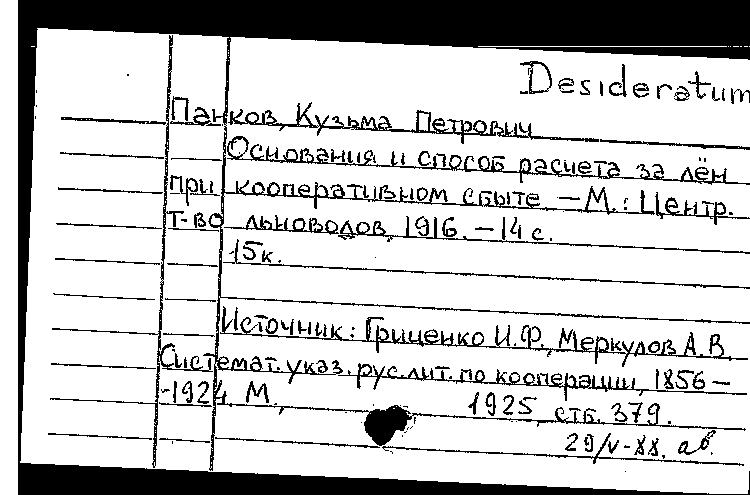 Desideratum
Панков, Кузьма Петрович
Основания и способ расчета за лён
при кооперативном сбыте. — М.: Центр.
т-во льноводов, 1916. — 14 с.
15к.
Источник: Гриценко И.Ф., Меркулов А.В.
Системат. указ. рус. лит. по кооперации, 1856 —
-1924. М., 1925, стб. 379.
29/V-88. ав.